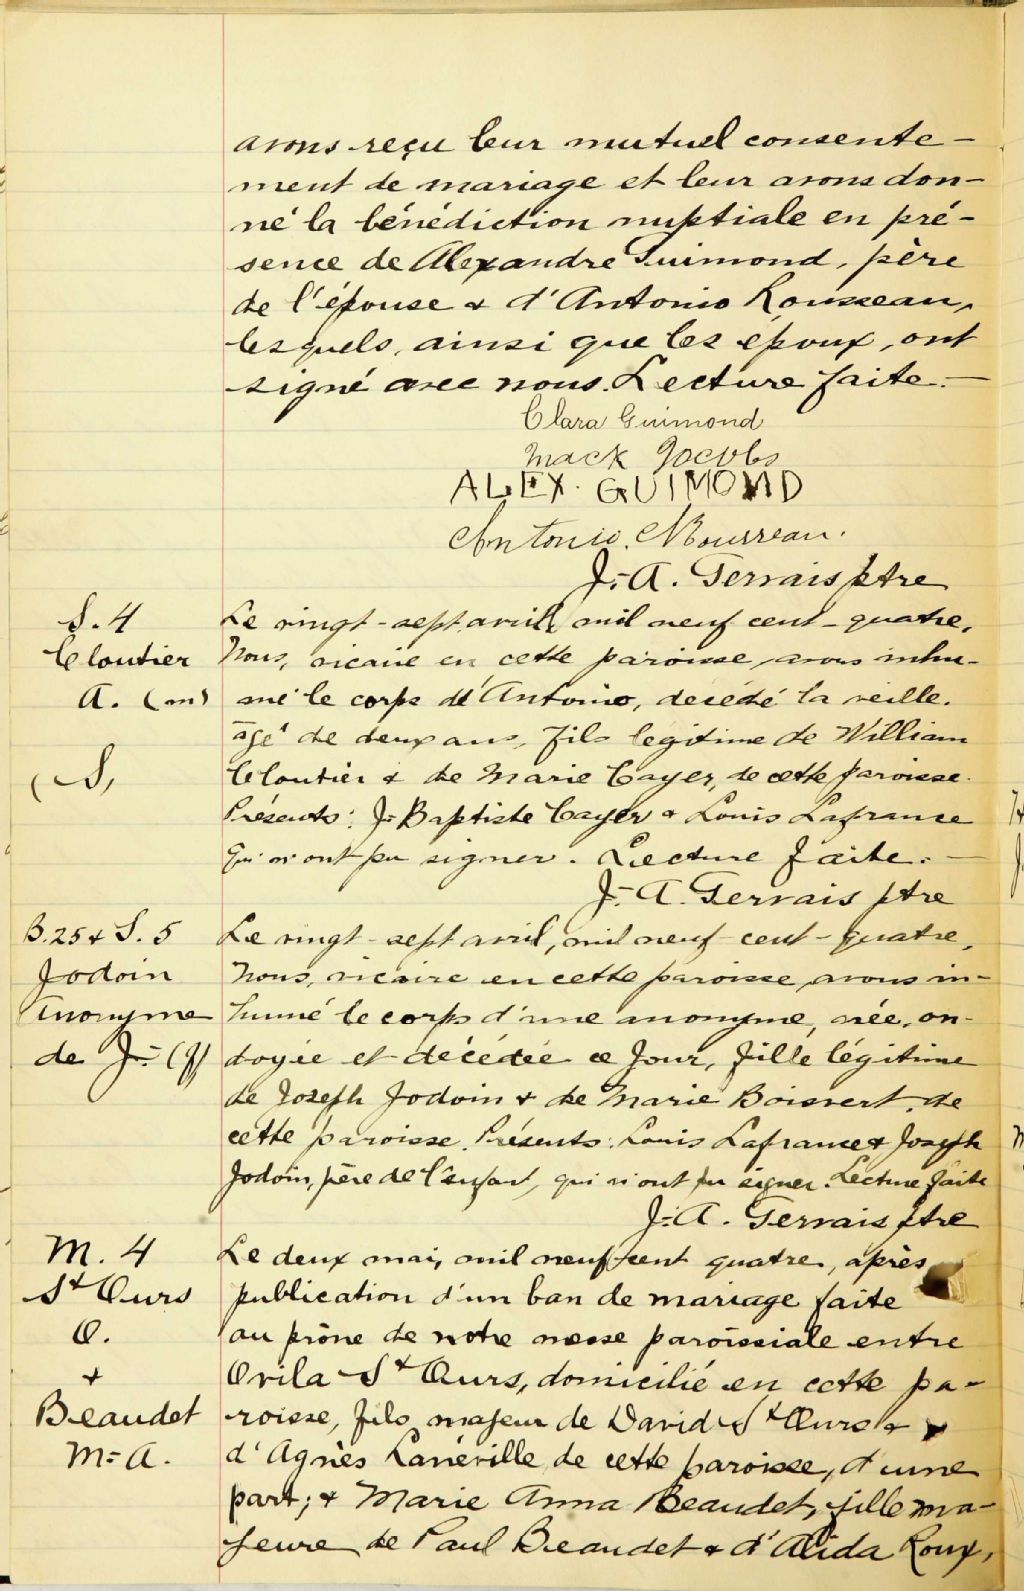 avons reçu leur mutuel consente-
ment de mariage et leur avons don-
né la bénédiction nuptiale en pré-
sence de Alexandre Guimond, père
de l'épouse & d'Antonio Rousseau,
lesquels, ainsi que les époux, ont
signé avec nous. Lecture faite.—
Clara Guimond
Mack Jacobs
ALEX. GUIMOND
Antonio. Rousseau.
J.-A. Gervais ptre
S. 4
Cloutier
A. (m)
(S,
Le vingt-sept avril, mil neuf cent-quatre,
Nous, vicaire en cette paroisse, avons inhu-
mé le corps d'Antonio, décédé la veille.
âgé de deux ans, fils légitime de William
Cloutier & de Marie Cayer, de cette paroisse.
Présents: J-Baptiste Cayer & Louis Lafrance
qui n'ont pu signer. Lecture faite.—
J.-A. Gervais ptre
B. 25 & S. 5
Jodoin
Anonyme
de J.- (f)
Le vingt-sept avril, mil neuf-cent-quatre,
Nous, vicaire en cette paroisse, avons in-
humé le corps d'une anonyme, née, on-
doyée et décédée ce jour, fille légitime
de Joseph Jodoin & de Marie Boisvert, de
cette paroisse. Présents: Louis Lafrance & Joseph
Jodoin, père de l'enfant, qui n'ont pu signer. Lecture faite
J.-A. Gervais ptre
M. 4
St Ours
O.
+
Beaudet
M-A.
Le deux mai, mil neuf-cent quatre, après
publication d'un ban de mariage faite
au prône de notre messe paroissiale entre
Ovila St Ours, domicilié en cette pa-
roisse, fils majeur de David St Ours &
d'Agnès Lanéville de cette paroisse, d'une
part; & Marie Anna Beaudet, fille ma-
jeure de Paul Beaudet & d'Alida Roux,